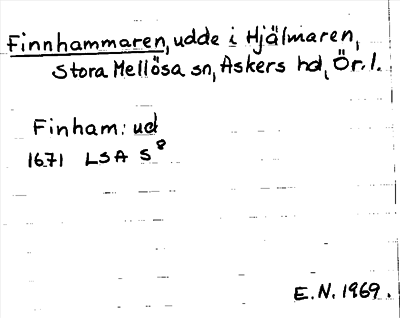 Finnhammaren, udde i Hjälmaren,
Stora Mellösa sn, Askers hd, Ör. l.
Finham: ud
1671 LSA S⁸
E.N. 1969.